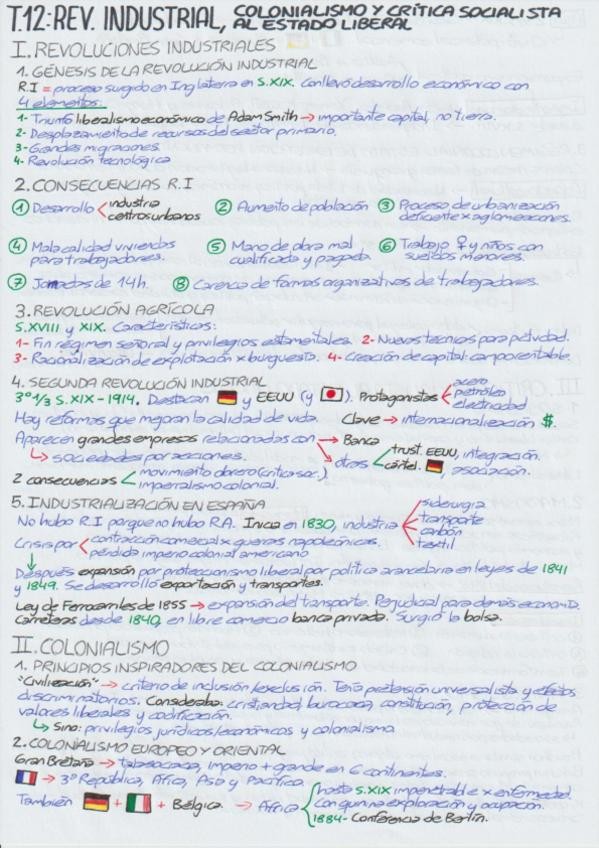 T.12: REV. INDUSTRIAL, COLONIALISMO Y CRÍTICA SOCIALISTA
AL ESTADO LIBERAL
I. REVOLUCIONES INDUSTRIALES
1. GÉNESIS DE LA REVOLUCIÓN INDUSTRIAL
R.I = proceso surgido en Inglaterra en S.XIX. Conllevó desarrollo económico con
4 elementos:
1- Triunfo liberalismo económico de Adam Smith → importante capital, no tierra.
2- Desplazamiento de recursos del sector primario.
3- Grandes migraciones.
4- Revolución tecnológica
2. CONSECUENCIAS R.I
① Desarrollo < industria
centros urbanos
② Aumento de población
③ Proceso de urbanización
deficiente x aglomeraciones.
④ Mala calidad viviendas
para trabajadores.
⑤ Mano de obra mal
cualificada y pagada.
⑥ Trabajo ♀ y niños con
sueldos menores.
⑦ Jornadas de 14h.
⑧ Carencia de formas organizativas de trabajadores.
3. REVOLUCIÓN AGRÍCOLA
S.XVIII y XIX. Características:
1- Fin régimen señorial y privilegios estamentales. 2- Nuevas técnicas para activdad.
3- Racionalización de explotación x burguesía. 4- Creación de capital: campo rentable.
4. SEGUNDA REVOLUCIÓN INDUSTRIAL
3º 1/3 S.XIX - 1914. Destacan y EEUU (y ). Protagonistas < acero
petróleo
electricidad
Hay reformas que mejoran la calidad de vida. Clave → internacionalización $.
Aparecen grandes empresas relacionadas con → Banca
↳ sociedades por acciones.
→ otros < trust. EEUU, integración.
cártel. , asociación.
2 consecuencias < movimiento obrero (crítica soc.)
imperialismo colonial.
5. INDUSTRIALIZACIÓN EN ESPAÑA
No hubo R.I porque no hubo R.A. Inicia en 1830, industria < siderurgia
transporte
carbón
textil
Crisis por < contracción comercial x guerras napoleónicas.
pérdida imperio colonial americano
Después expansión por proteccionismo liberal por política arancelaria en leyes de 1841
y 1849. Se desarrolló exportación y transportes.
Ley de Ferrocarriles de 1855 → expansión del transporte. Perjudicial para demás economía.
Carreteras desde 1840, en libre comercio banca privada. Surgió la bolsa.
II. COLONIALISMO
1. PRINCIPIOS INSPIRADORES DEL COLONIALISMO
"Civilización" → criterio de inclusión/exclusión. Tenía pretensión universalista y efectos
discriminatorios. Consideraba: cristiandad, burocracia, constitución, protección de
valores liberales y codificación.
↳ Sino: privilegios jurídicos/económicos y colonialismo.
2. COLONIALISMO EUROPEO Y ORIENTAL
Gran Bretaña → talasocracia, imperio + grande en 6 continentes.
→ 3º República, África, Asia y Pacífico.
También + + Bélgica. → África { hasta S.XIX impenetrable x enfermedad.
Con quinina exploración y ocupación.
1884 - Conferencia de Berlín.